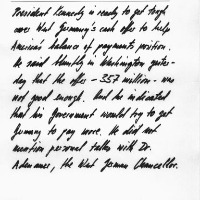 President Kennedy is ready to get tough
over West Germany's cash offer to help
America's balance of payments position.
He said bluntly in Washington yester-
day that the offer - 357 million - was
not good enough. And he indicated
that his Government would try to get
Germany to pay more. He did not
mention personal talks with Dr.
Adenauer, the West German Chancellor.